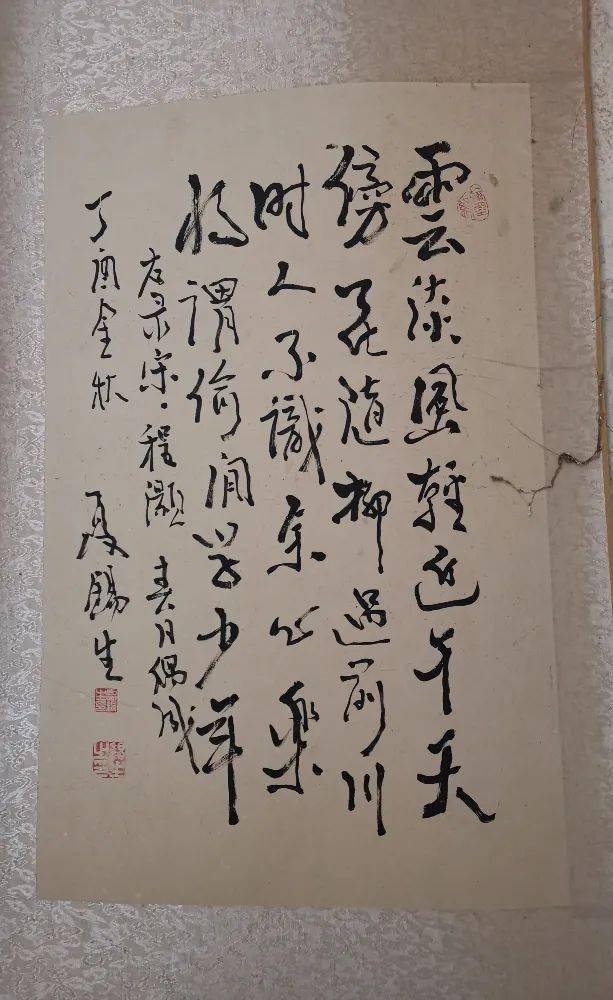 雲淡風輕近午天
傍花随柳過前川
时人不識余心樂
将謂偷闲学少年
右录宋·程灏 春日偶成
丁酉金秋 夏錫生